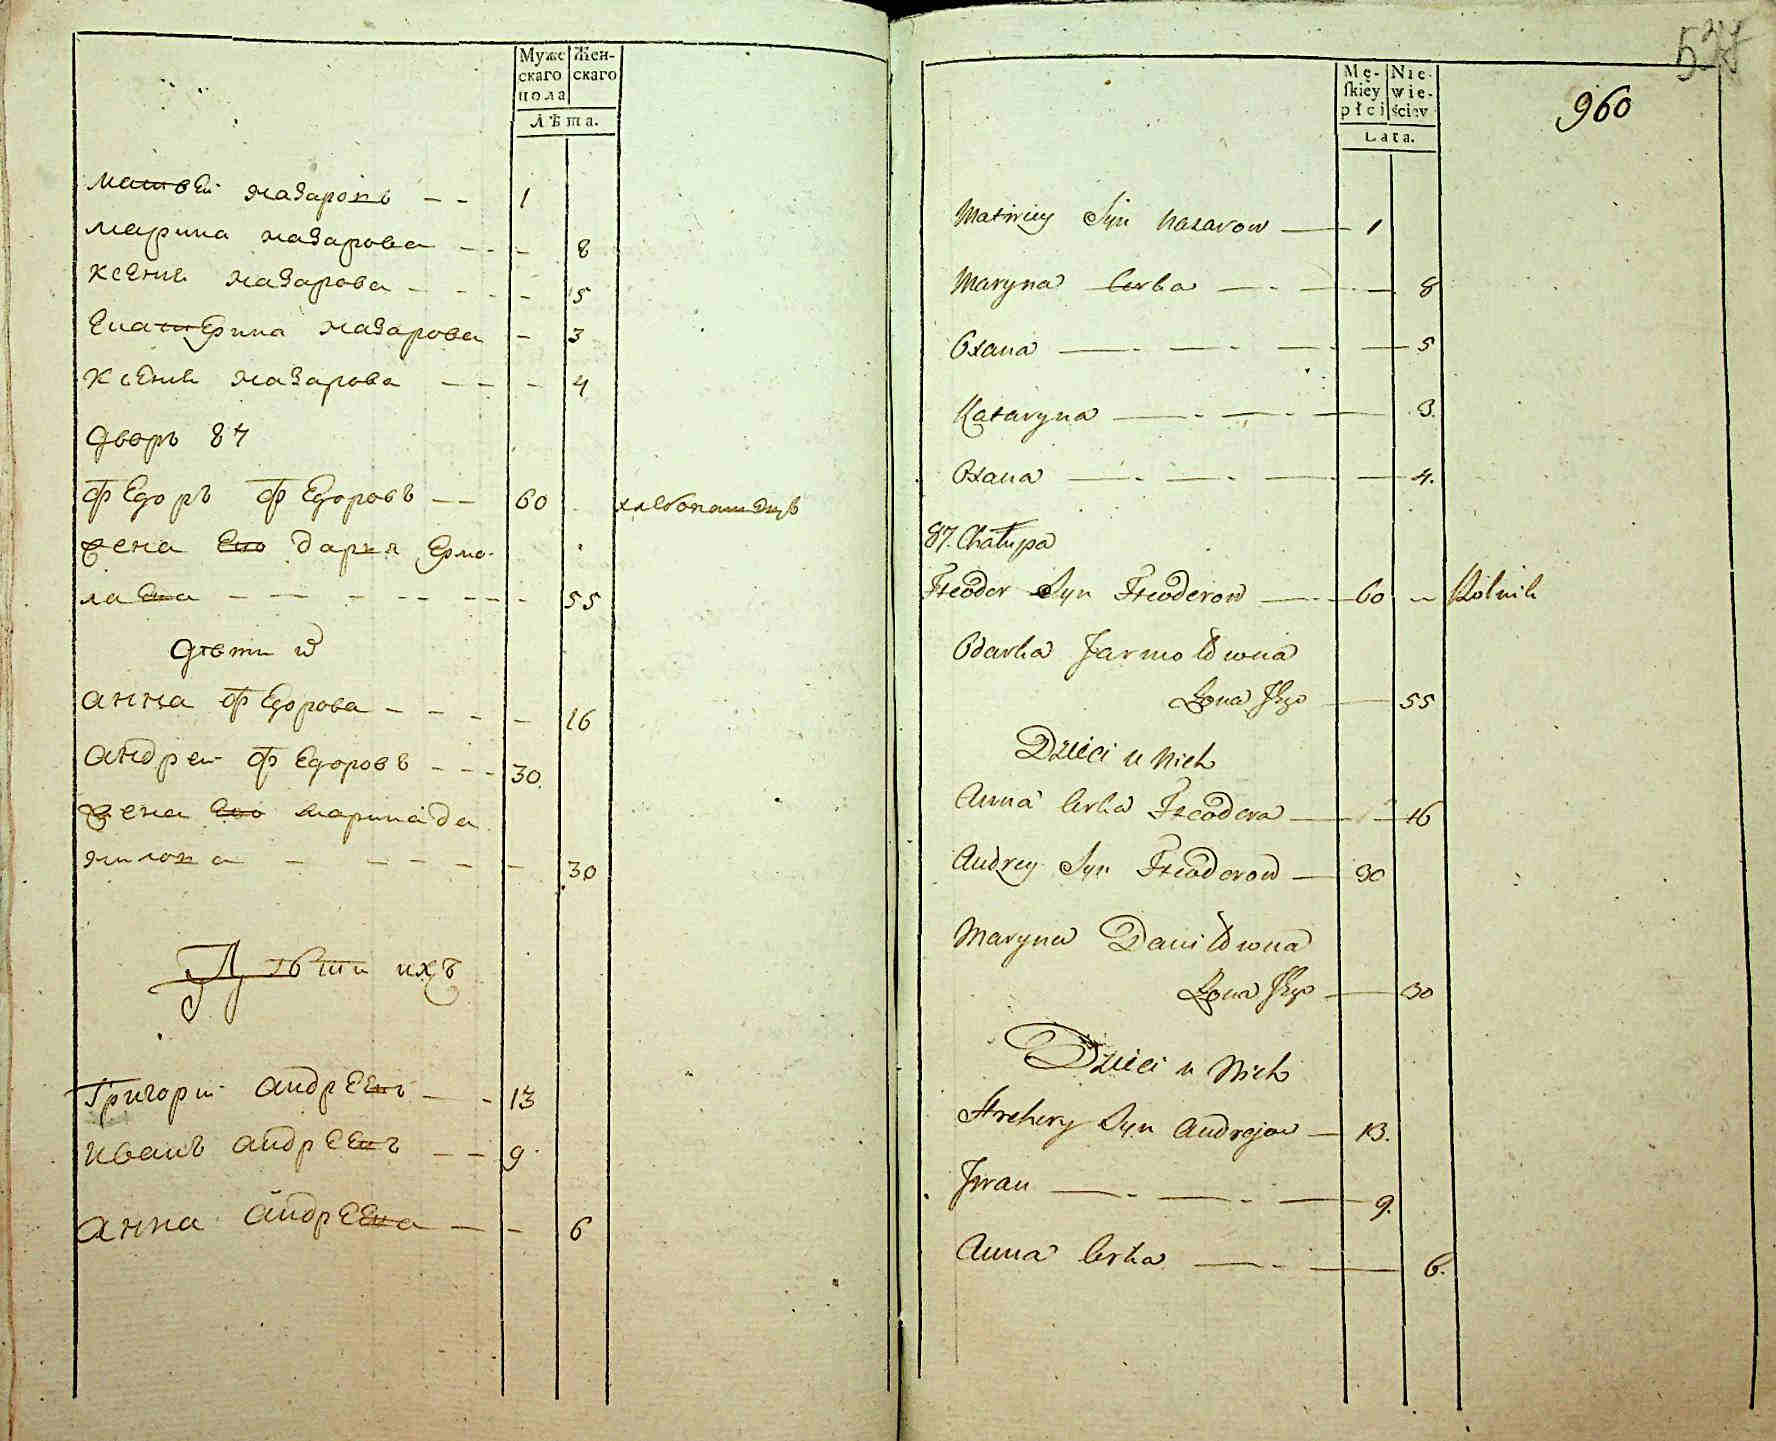 Муже Жен-
скаго скаго
пола
Лѣта.
Матвей Назаровъ - - 1
Марина Назарова - - - 8
Ксения Назарова - - - - 5
Екатерина Назарова - 3
Ксения Назарова - - - 4
Дворъ 87
Федоръ Федоровъ - - 60 хлебопашецъ
жена Ево Дарья Ермо-
лаева - - - - - - - - 55
Дети их
Анна Федорова - - - - 16
Андрей Федоровъ - - - 30.
жена Ево Марина Да
нилова - - - - - - 30
Дѣти ихъ
Григорий Андреевъ - - 13
Иванъ Андреевъ - - 9
Анна Андреева - - 6
960
Mę- Nie-
skiey wie-
płci ściey
Lata.
Matwiey Syn Nazarow - 1
Maryna Corka - - - - 8
Oxana - - - - 5
Kataryna - - - 3.
Oxana - - - - 4.
87. Chałupa
Fteodor Syn Fteoderow - - 60 - Rolnik
Odarka Jarmołowna
Żona Jego - 55
Dzieci u Nich
Anna Corka Fteodora - - 16
Andrey Syn Fteoderow - 30
Maryna Daniłowna
Żona Jego - 30
Dzieci u Nich
Hrehory Syn Andrejow - 13.
Jwan - - - - - 9.
Anna Corka - - - 6.